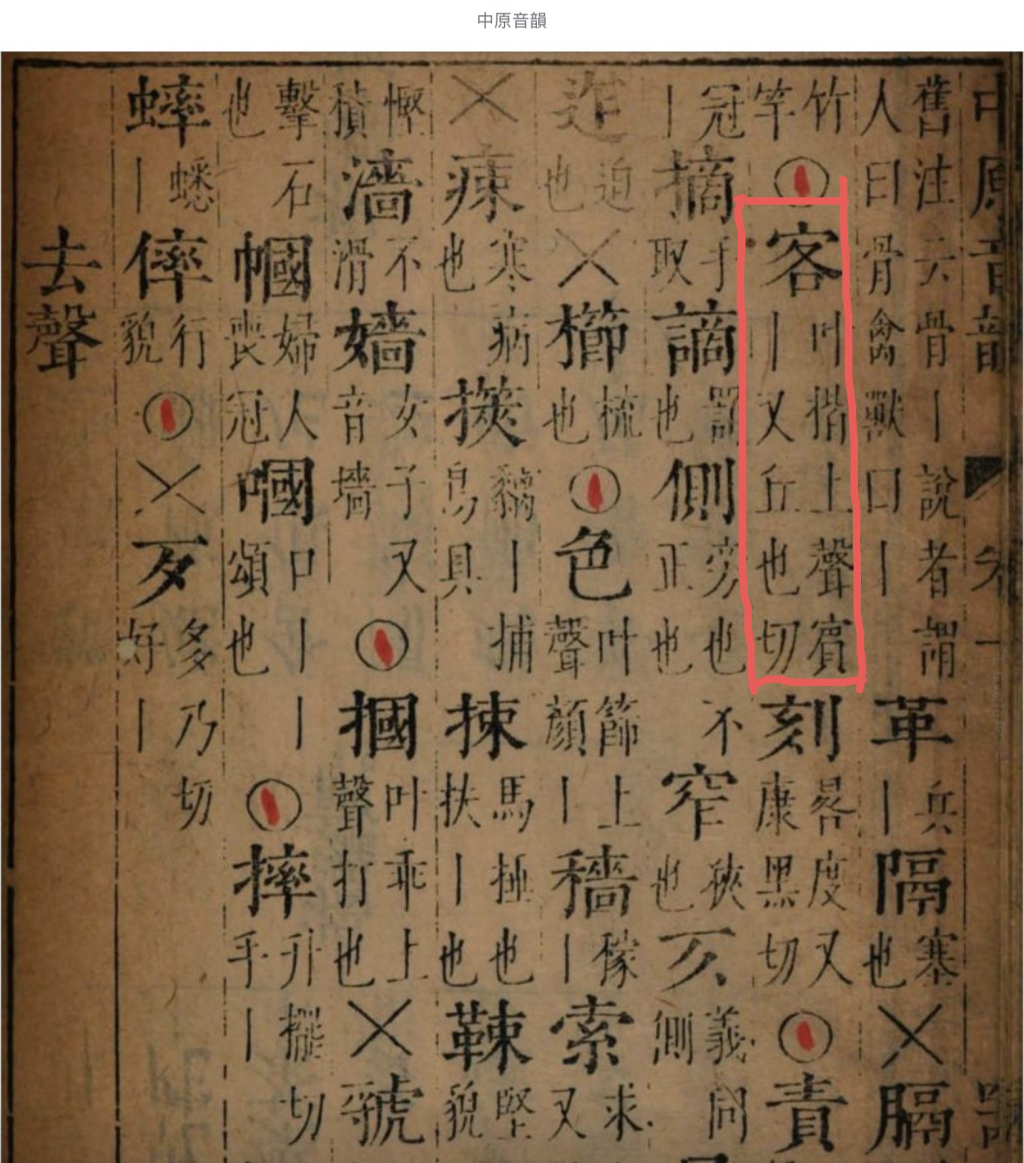 中原音韻
中原音韻
舊注云骨丨說者謂人曰骨禽獸曰丨革兵丨隔塞也膈
竹竿○客叶揩上聲賔丨又丘也切刻晷度又康黑切○責
冠丨摘手取謫罰也側旁也不正也窄狹也仄義同側
迮迫也櫛梳也○色叶篩上聲顏丨穡稼丨索求又
寒病也丨捕鳥具捒馬捶也扶丨也堅貌
慳積濇不滑嬙女子又音墻○摑叶乖上聲打也虢
擊石也幗婦人喪冠嘓口丨丨頌也○摔升擺切手丨
蟀蟋丨行貌○歹多乃切好丨
去聲